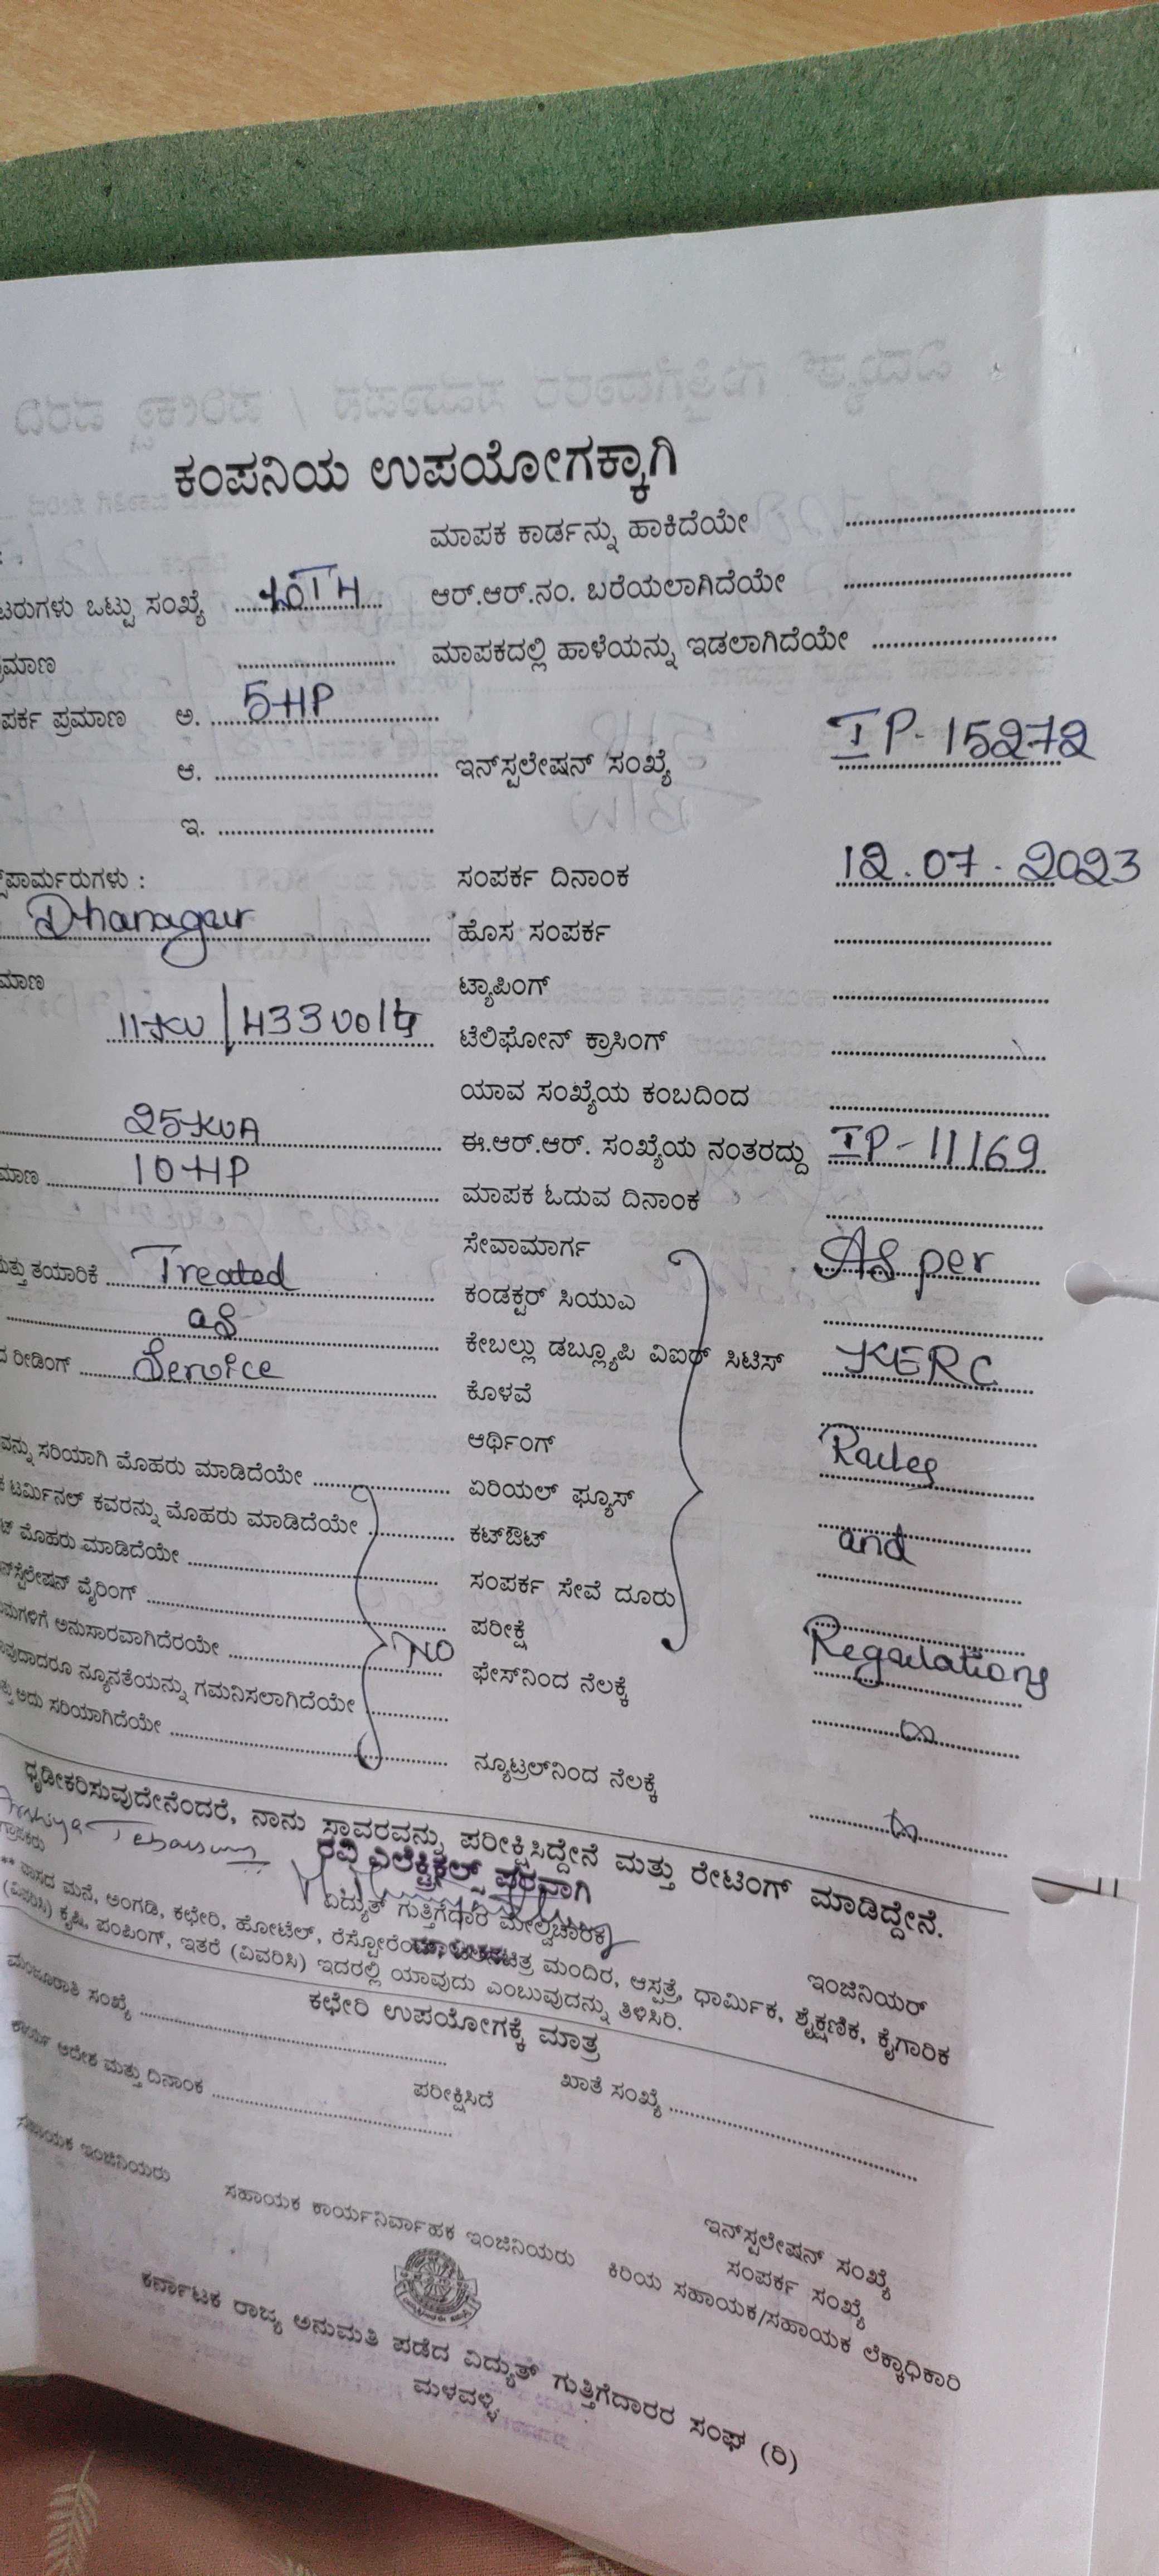 ಕಂಪನಿಯ ಉಪಯೋಗಕ್ಕಾಗಿ
ಮಾಪಕ ಕಾರ್ಡನ್ನು ಹಾಕಿದೆಯೇ
ಟರುಗಳು ಒಟ್ಟು ಸಂಖ್ಯೆ ಆರ್.ಆರ್.ನಂ. ಬರೆಯಲಾಗಿದೆಯೇ
ಮಾಣ ಮಾಪಕದಲ್ಲಿ ಹಾಳೆಯನ್ನು ಇಡಲಾಗಿದೆಯೇ
ಪರ್ಕ ಪ್ರಮಾಣ ಅ. 5HP
ಆ. ಇನ್‌ಸ್ಪಲೇಷನ್ ಸಂಖ್ಯೆ IP-15272
ಇ.
ಪಾರ್ಮರುಗಳು : ಸಂಪರ್ಕ ದಿನಾಂಕ 12.07.2023
Dhanagaur ಹೊಸ ಸಂಪರ್ಕ
ಮಾಣ ಟ್ಯಾಪಿಂಗ್
11KV/433volts ಟೆಲಿಫೋನ್ ಕ್ರಾಸಿಂಗ್
ಯಾವ ಸಂಖ್ಯೆಯ ಕಂಬದಿಂದ
25KVA ಈ.ಆರ್.ಆರ್. ಸಂಖ್ಯೆಯ ನಂತರದ್ದು IP-11169
ಮಾಣ 10HP ಮಾಪಕ ಓದುವ ದಿನಾಂಕ
ಸೇವಾಮಾರ್ಗ As per
ಮತ್ತು ತಯಾರಿಕೆ Treated ಕಂಡಕ್ಟರ್ ಸಿಯುಎ
as ಕೇಬಲ್ಲು ಡಬ್ಲ್ಯೂಪಿ ವಿಐಆರ್ ಸಿಟಿಸ್ KERC
ದ ರೀಡಿಂಗ್ Service ಕೊಳವೆ
ಆರ್ಥಿಂಗ್ Rules
ವನ್ನು ಸರಿಯಾಗಿ ಮೊಹರು ಮಾಡಿದೆಯೇ ಏರಿಯಲ್ ಫ್ಯೂಸ್
ಟರ್ಮಿನಲ್ ಕವರನ್ನು ಮೊಹರು ಮಾಡಿದೆಯೇ ಕಟ್‌ಔಟ್ and
ಟ್ ಮೊಹರು ಮಾಡಿದೆಯೇ ಸಂಪರ್ಕ ಸೇವೆ ದೂರು
ನ್‌ಸ್ಪಲೇಷನ್ ವೈರಿಂಗ್ ಪರೀಕ್ಷೆ
ಮಗಳಿಗೆ ಅನುಸಾರವಾಗಿದೆರಯೇ NO ಫೇಸ್‌ನಿಂದ ನೆಲಕ್ಕೆ Regulations
ವುದಾದರೂ ನ್ಯೂನತೆಯನ್ನು ಗಮನಿಸಲಾಗಿದೆಯೇ
ಅದು ಸರಿಯಾಗಿದೆಯೇ ನ್ಯೂಟ್ರಲ್‌ನಿಂದ ನೆಲಕ್ಕೆ
ಧೃಡೀಕರಿಸುವುದೇನೆಂದರೆ, ನಾನು ಸ್ಥಾವರವನ್ನು ಪರೀಕ್ಷಿಸಿದ್ದೇನೆ ಮತ್ತು ರೇಟಿಂಗ್ ಮಾಡಿದ್ದೇನೆ.
ರವಿ ಎಲೆಕ್ಟ್ರಿಕಲ್ಸ್ ಪರವಾಗಿ
ಗ್ರಾಹಕರು ವಿದ್ಯುತ್ ಗುತ್ತಿಗೆದಾರ ಮೇಲ್ವಿಚಾರಕ ಇಂಜಿನಿಯರ್
** ವಾಸದ ಮನೆ, ಅಂಗಡಿ, ಕಛೇರಿ, ಹೋಟೆಲ್, ರೆಸ್ಟೋರೆಂಟ್, ಚಲನಚಿತ್ರ ಮಂದಿರ, ಆಸ್ಪತ್ರೆ, ಧಾರ್ಮಿಕ, ಶೈಕ್ಷಣಿಕ, ಕೈಗಾರಿಕ
(ವಿವರಿಸಿ) ಕೃಷಿ, ಪಂಪಿಂಗ್, ಇತರೆ (ವಿವರಿಸಿ) ಇದರಲ್ಲಿ ಯಾವುದು ಎಂಬುವುದನ್ನು ತಿಳಿಸಿರಿ.
ಕಛೇರಿ ಉಪಯೋಗಕ್ಕೆ ಮಾತ್ರ
ಮಂಜೂರಾತಿ ಸಂಖ್ಯೆ ಖಾತೆ ಸಂಖ್ಯೆ
ಕಾರ್ಯ ಆದೇಶ ಮತ್ತು ದಿನಾಂಕ ಪರೀಕ್ಷಿಸಿದೆ
ಇನ್‌ಸ್ಪಲೇಷನ್ ಸಂಖ್ಯೆ
ಸಂಪರ್ಕ ಸಂಖ್ಯೆ
ಸಹಾಯಕ ಇಂಜಿನಿಯರು ಸಹಾಯಕ ಕಾರ್ಯನಿರ್ವಾಹಕ ಇಂಜಿನಿಯರು ಕಿರಿಯ ಸಹಾಯಕ/ಸಹಾಯಕ ಲೆಕ್ಕಾಧಿಕಾರಿ
ಕರ್ನಾಟಕ ರಾಜ್ಯ ಅನುಮತಿ ಪಡೆದ ವಿದ್ಯುತ್ ಗುತ್ತಿಗೆದಾರರ ಸಂಘ (ರಿ)
ಮಳವಳ್ಳಿ